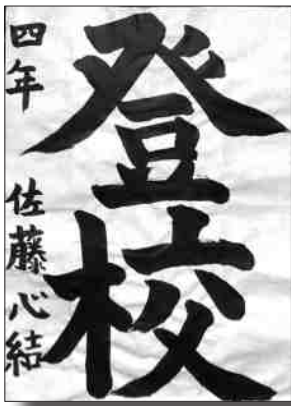 登校
四年 佐藤心結